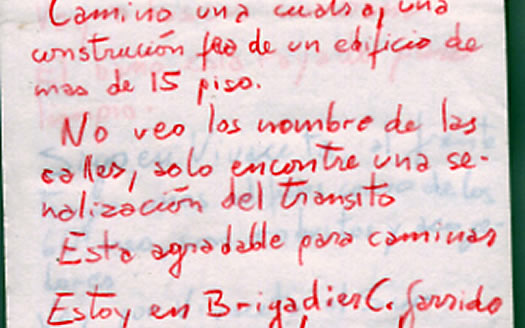 Camino una cuadra, una
construción feo de un edificio de
mas de 15 piso.
No veo los nombre de las
calles, solo encontre una se-
nalización del transito
Esta agradable para caminar
Estoy en Brigadier C. Garrido